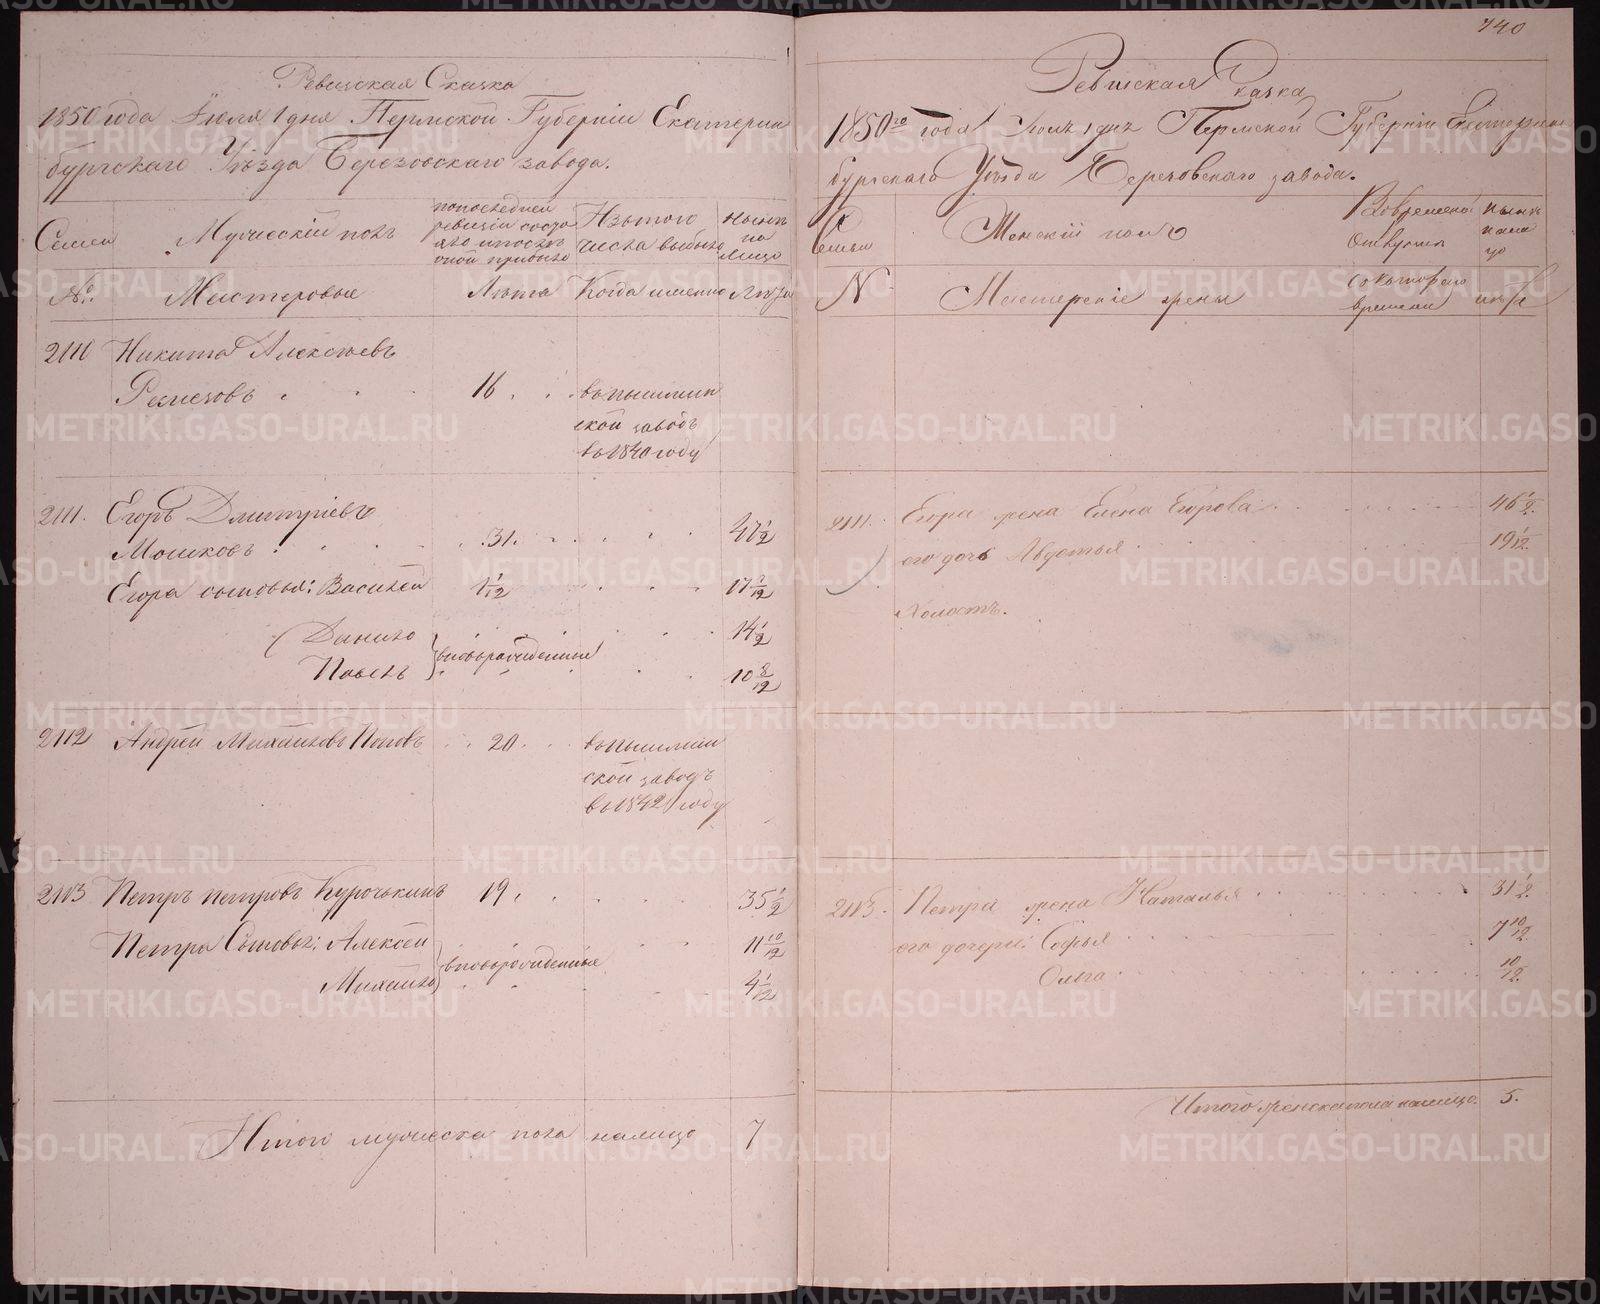 Ревизская Сказка
1850 года Июля 1 дня Пермской Губернiи Екатерин
бургскаго Уѣзда Березовскаго завода.
Семьи
Мужескiй полъ
по последней
ревизiи состо
яло и после
оной прибыло
Изъ того
числа выбыло
ныне
на
лицо
№.
Мастеровые
Лѣта
Когда именно
Лѣта
2110 Никита Алексѣевъ
Ремезовъ 16 въ пышмин
ской заводъ
въ 1840 году
2111. Егоръ Дмитрiевъ
Мошковъ 31. 47 1/2
Егора сыновья: Василей 2 1/12 17 7/12
Данило 14 1/2
Павелъ вновьрожденные 10 8/12
2112 Андрей Михайловъ Поповъ 20. въ пышмин
ской заводъ
въ 1842 году
2113 Петръ Петровъ Курочькинъ 19. 35 1/2
Петра Сыновья: Алексей 11 10/12
Михайло вновьрожденные 4 1/12
Итого мужеска пола налицо 7
740
Ревизская Сказка
1850го года Июля 1 дня Пермской Губернiи Екатерин
бургскаго Уѣзда Березовскаго завода.
Семьи
Женскiй полъ
Во временной
отлучки
ныне
нали
цо
N
Мастерскiе жены
съ котораго
времени
лѣта
2111. Егора жена Елена Егорова 46 1/2.
его дочь Авдотья 19 1/12.
Холостъ.
2113. Петра жена Наталья 31 1/2.
его дочери: Софья 7 10/12.
Ольга 10/12.
Итого женска пола налицо. 5.
METRIKI.GASO-URAL.RU